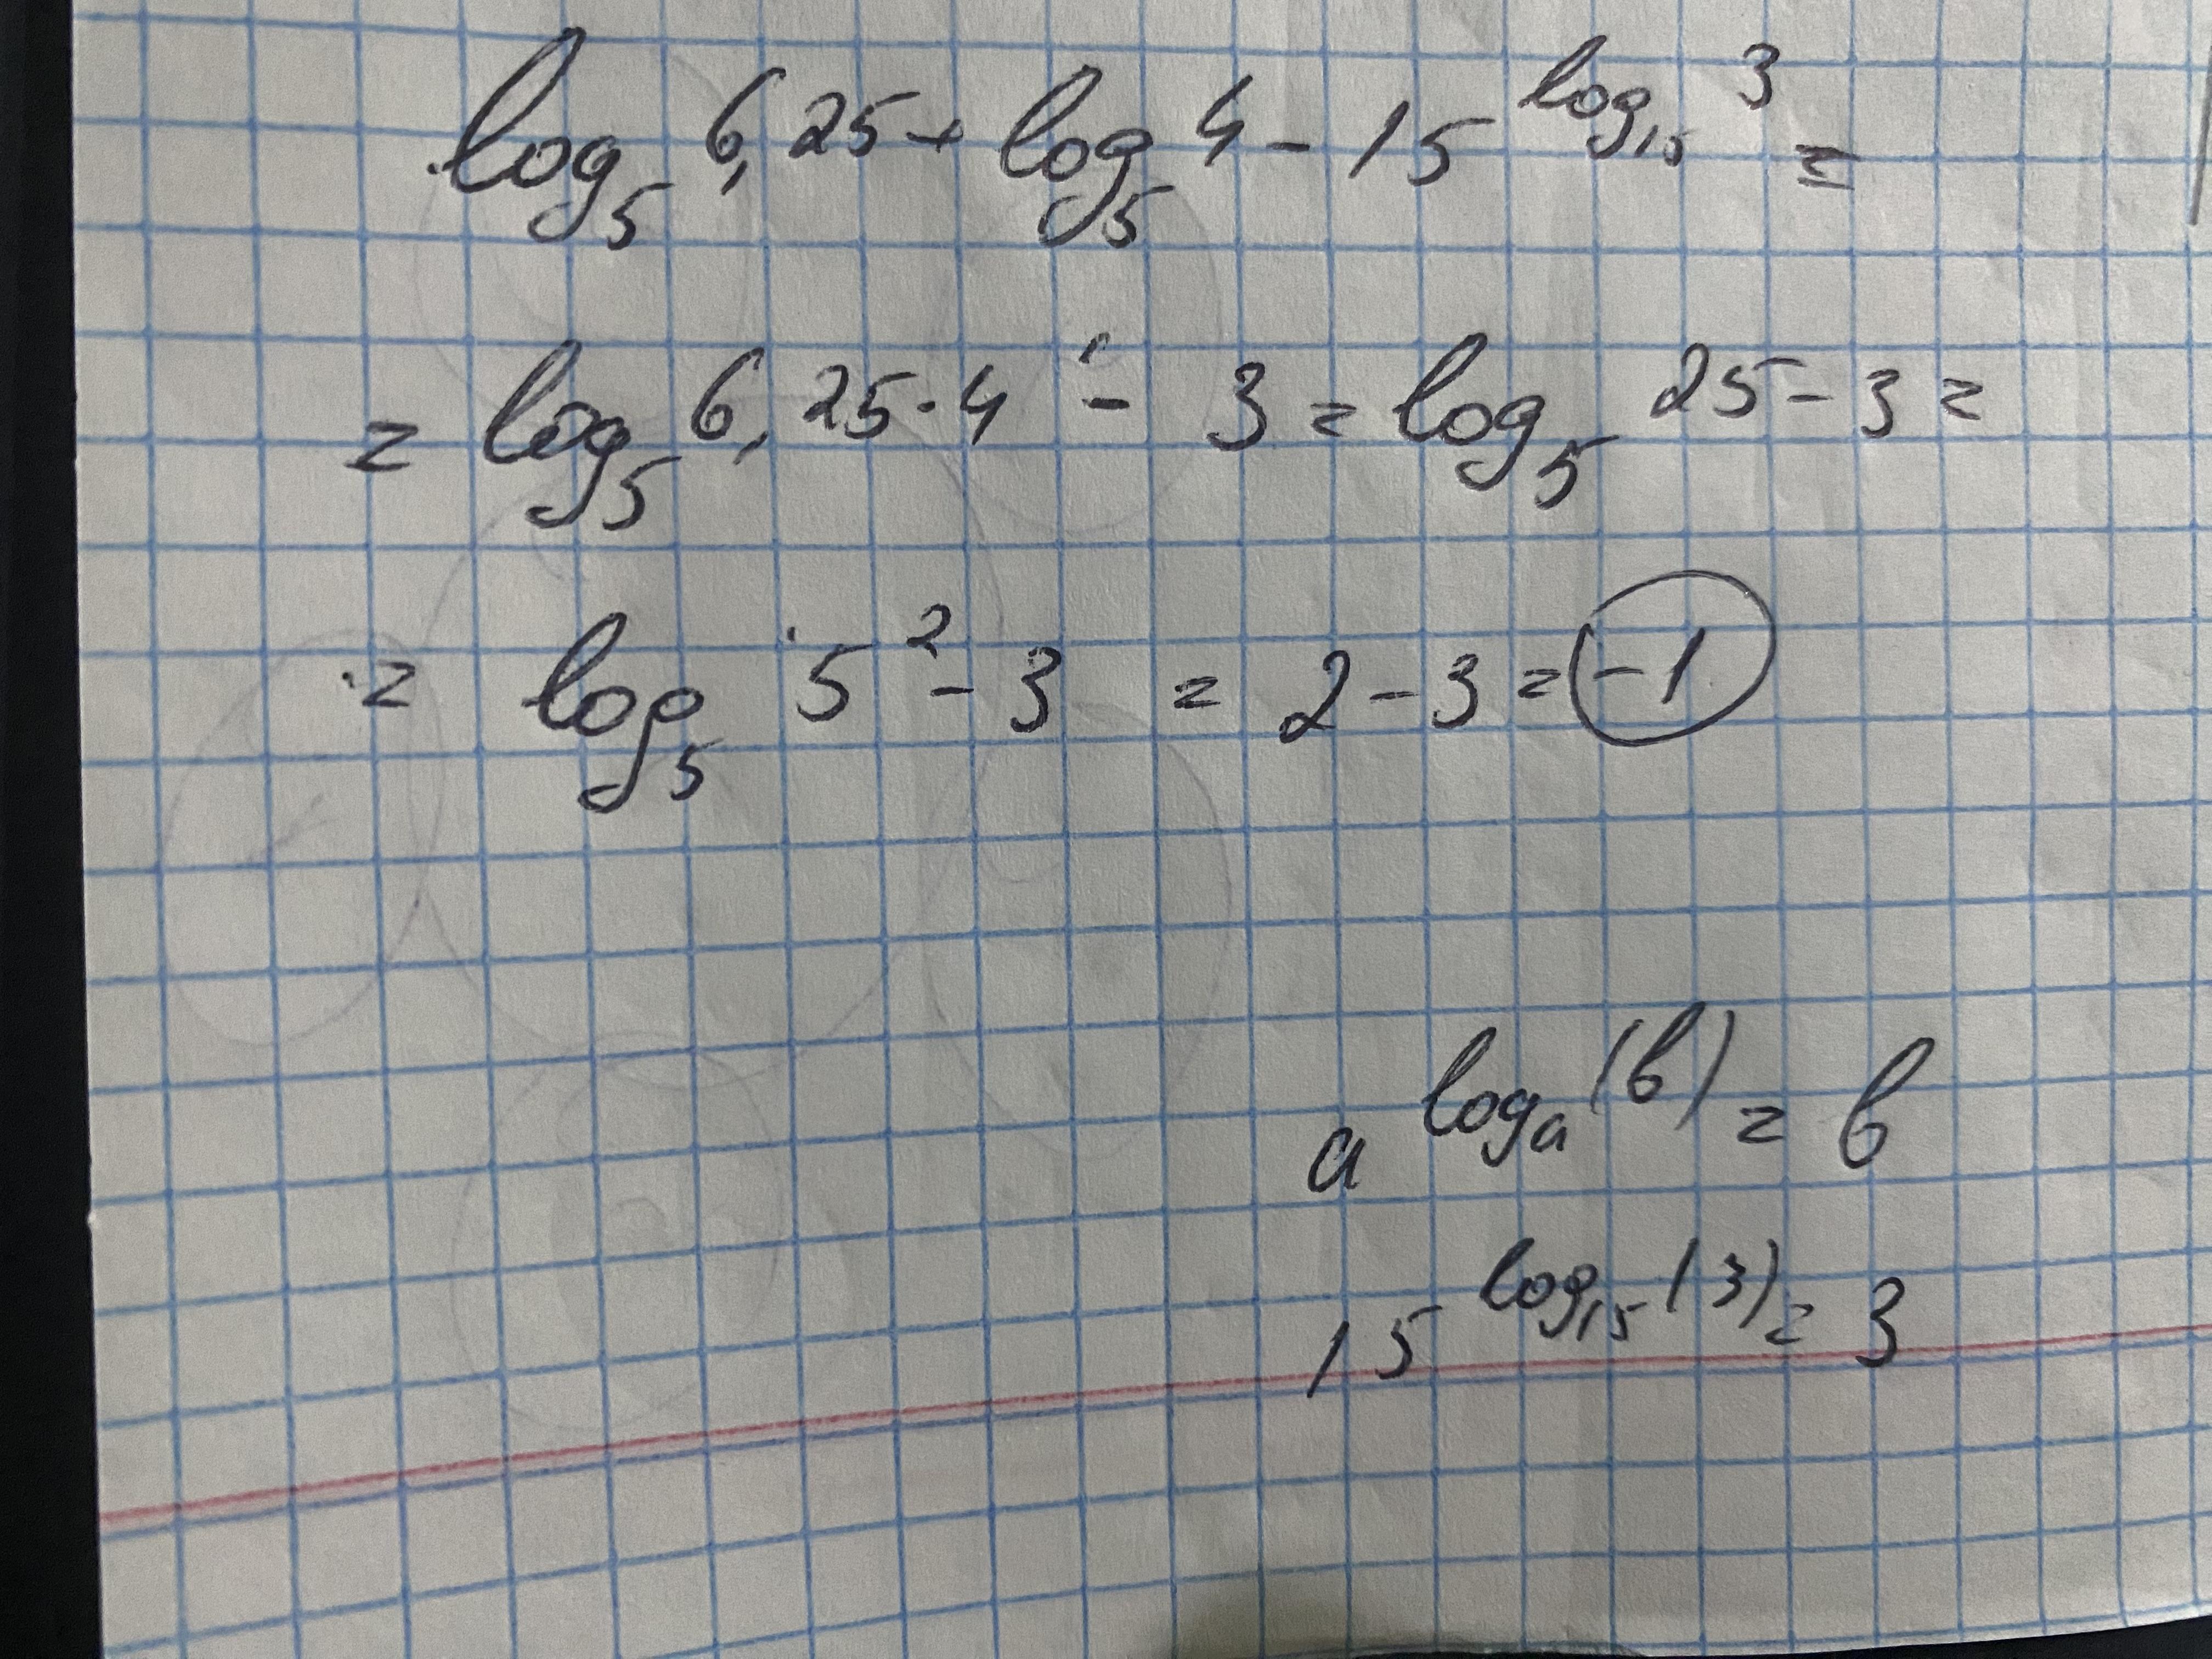 log₅ 6,25 + log₅ 4 - 15^log₁₅ 3 =
= log₅ 6,25 · 4 - 3 = log₅ 25 - 3 =
= log₅ 5² - 3 = 2 - 3 = -1
a^logₐ(b) = b
15^log₁₅(3) = 3